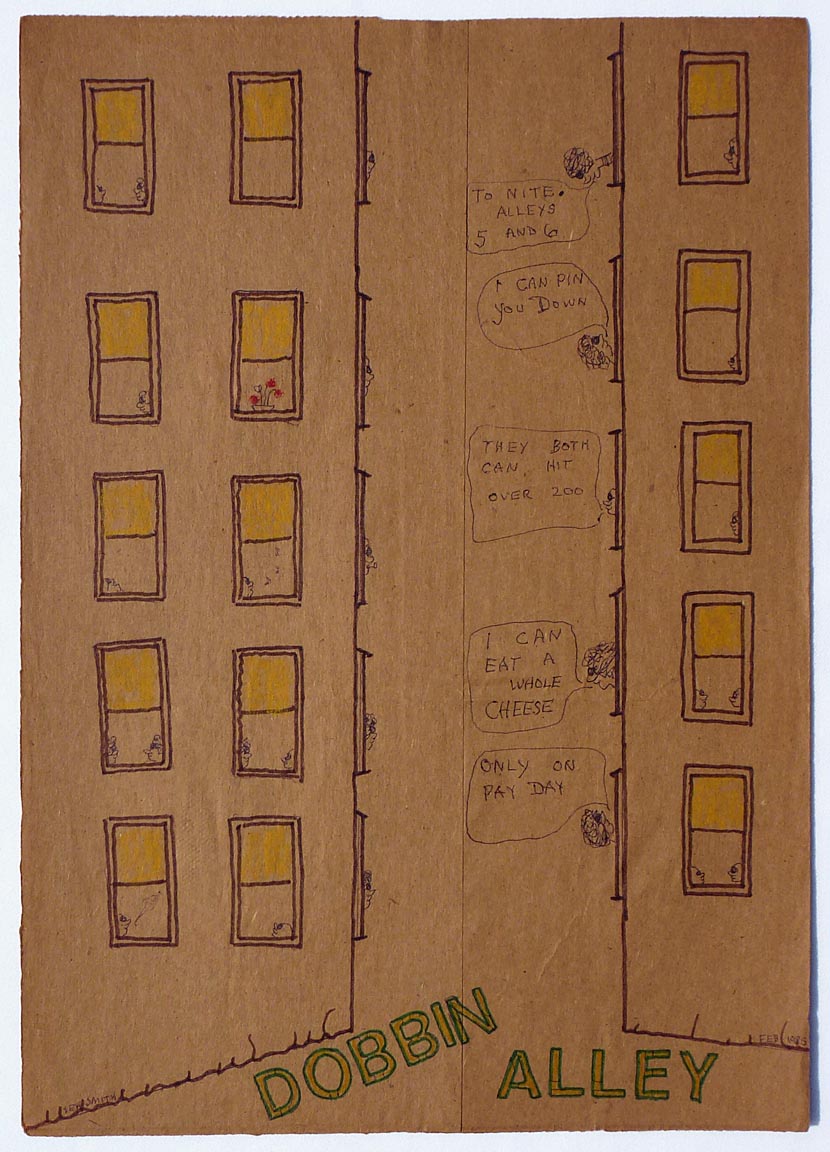 TO NITE.
ALLEYS
5 AND 6
I CAN PIN
YOU DOWN
THEY BOTH
CAN HIT
OVER 200
I CAN
EAT A
WHOLE
CHEESE
ONLY ON
PAY DAY
DOBBIN
ALLEY
SMITH
FEB